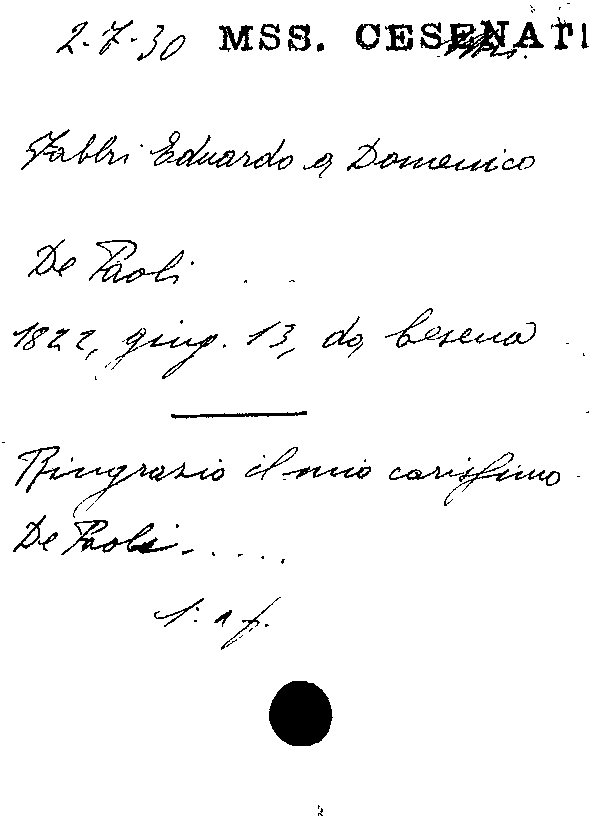 2-7-30 MSS. CESENATI
Fabbri Eduardo a Domenico
De Paoli . .
1822, giug. 13, da Cesena
Ringrazio il mio carissimo
De Paoli. . . . .
l. a f.